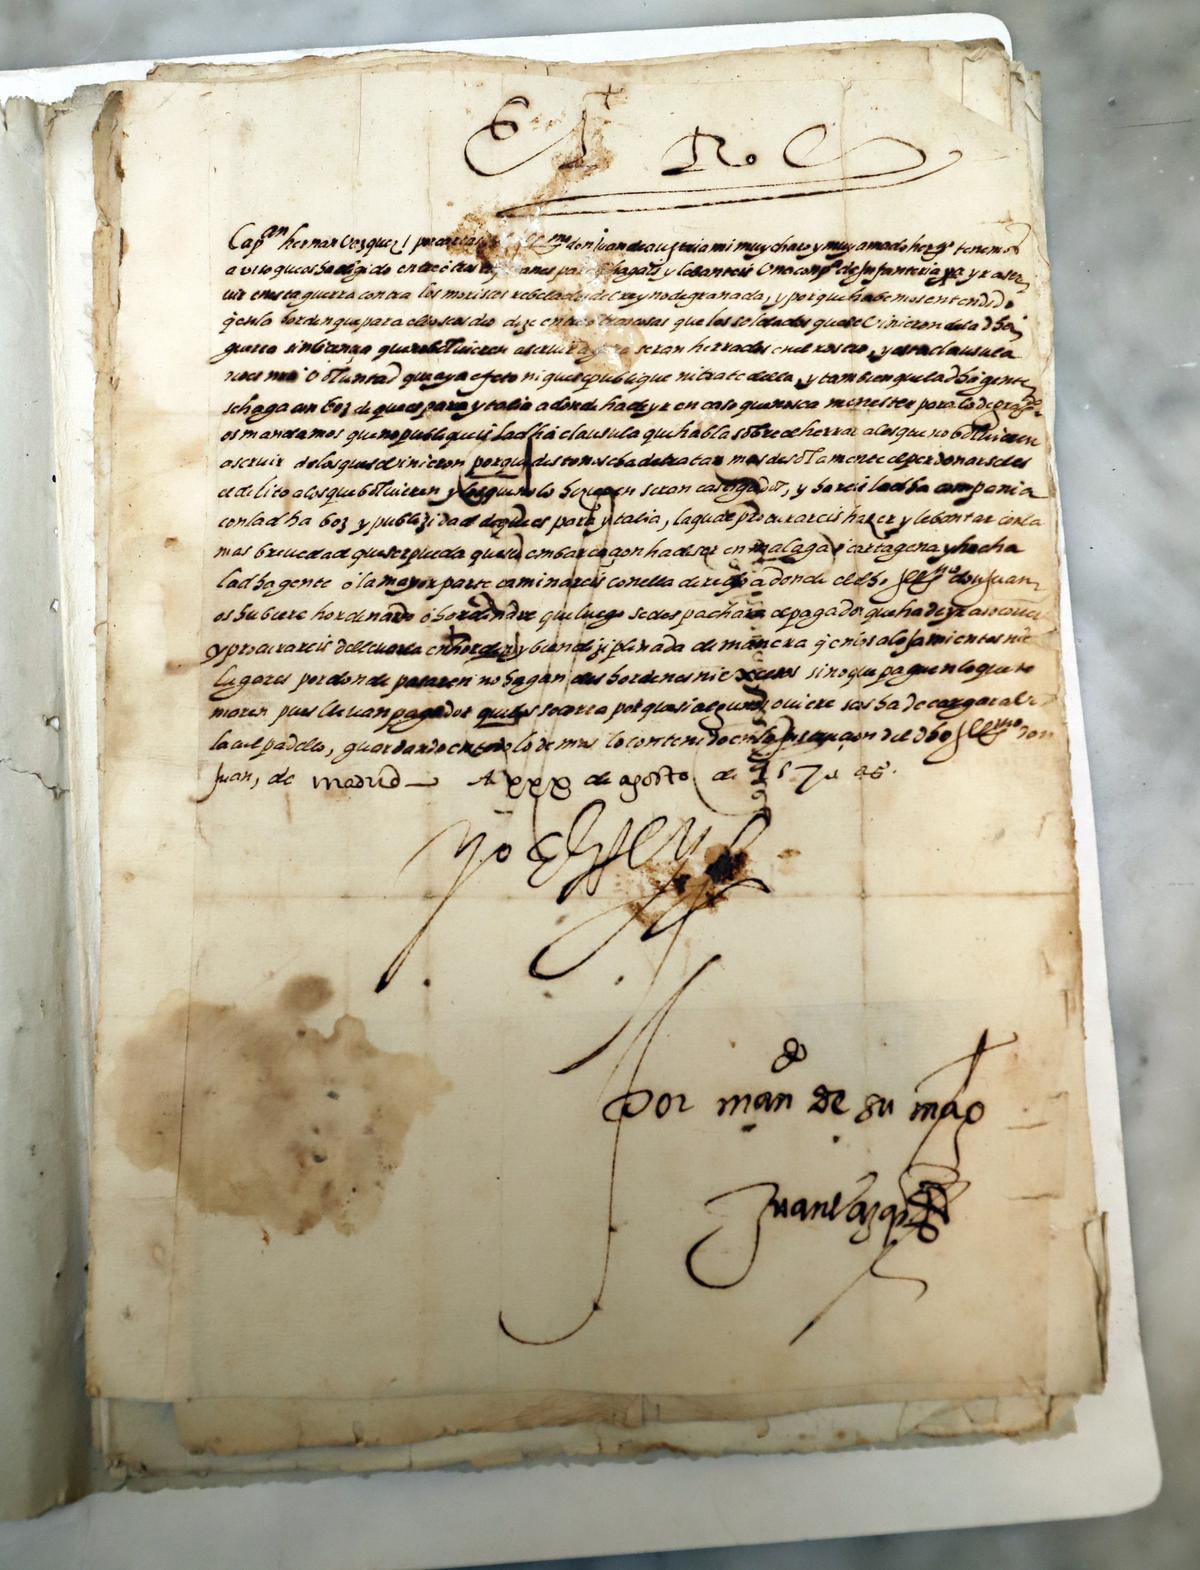 El Rey
Cap.an hernan Vazquez por cartas del Ill.mo don juan de austria mi muy charo y muy amado her.no tenemos
aviso que os ha eligido entre otros capitanes para q hagais y lebanteis Una comp.a de Infanteria para yr a ser
uir en esta guerra contra los moriscos rebelados del reyno de granada, y porque habemos entendido
q en la horden que para ello se os dio dize entre otras cosas que los soldados que se Vinieron de la dha
guerra sin licencia que no bolvieren a servir a ella seran herrados en el rostro, y esta clausula
no es mi Voluntad que aya efeto ni que se publique ni trate della, y tambien que la dha gente
se haga con boz de que es para ytalia a donde ha de yr en caso que no sea menester para lo de gra.da
os mandamos que no publiqueis la dha clausula que habla sobre el herrar a los que no bolvieren
a servir de los que se vinieron porque desto no se ha de tratar mas de solamente el perdonarseles
el delito a los que bolvieren y los que no lo hizieren seran castigados, y hareis la dha compania
con la dha boz y publizidad de que es para ytalia, la qual procurareis hazer y lebantar con la
mas brevedad que se pueda que su embarcaçon ha de ser en malaga o cartagena y hecha
la dha gente o la mayor parte caminareis con ella derecho a donde el dho Ser.mo don Juan
os hubiere hordenado o hordenare que luego se despachara el pagador que ha de yr a socorrer
y procurareis de llevarla en horden y bien diziplinada de manera q en los alojamientos ni
lugares por donde pasaren no hagan deshordenes ni excesos sino que paguen lo que to
maren pues llevan pagador que los socorra porque si alguno oviere se os ha de cargar a Vos
la culpa dello, guardando en todo lo demas lo contenido en la Instrucçion del dho Ser.mo don
Juan, de madrid A xxx de agosto de 1570 as.
yo El Rey
por man.do de su mag.d
Juan Vazquez